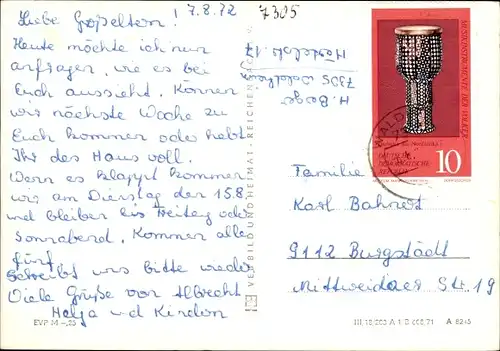 7.8.72
Liebe Goßeltern!
Heute möchte ich nur
anfragen, wie es bei
Euch aussieht. Können
wir nächste Woche zu
Euch kommen oder habt
Ihr das Haus voll.
Wenn es klappt kommen
wir am Dienstag den 15.8
und bleiben bis Freitag oder
sonnabend. Kommen alle
fünf
Schreibt uns bitte wieder
Viele Grüße von Albrecht
Helga und Kindern
7305
H.
7305 Waldheim
17
VEB BILD UND HEIMAT · REICHENBACH
MUSIKINSTRUMENTE DER VÖLKER
DEUTSCHE
DEMOKRATISCHE
REPUBLIK
10
WALD
Familie
Karl Bahnert
9112 Burgstädt
Mittweidaer Str. 19
EVP M –,25
A 8245